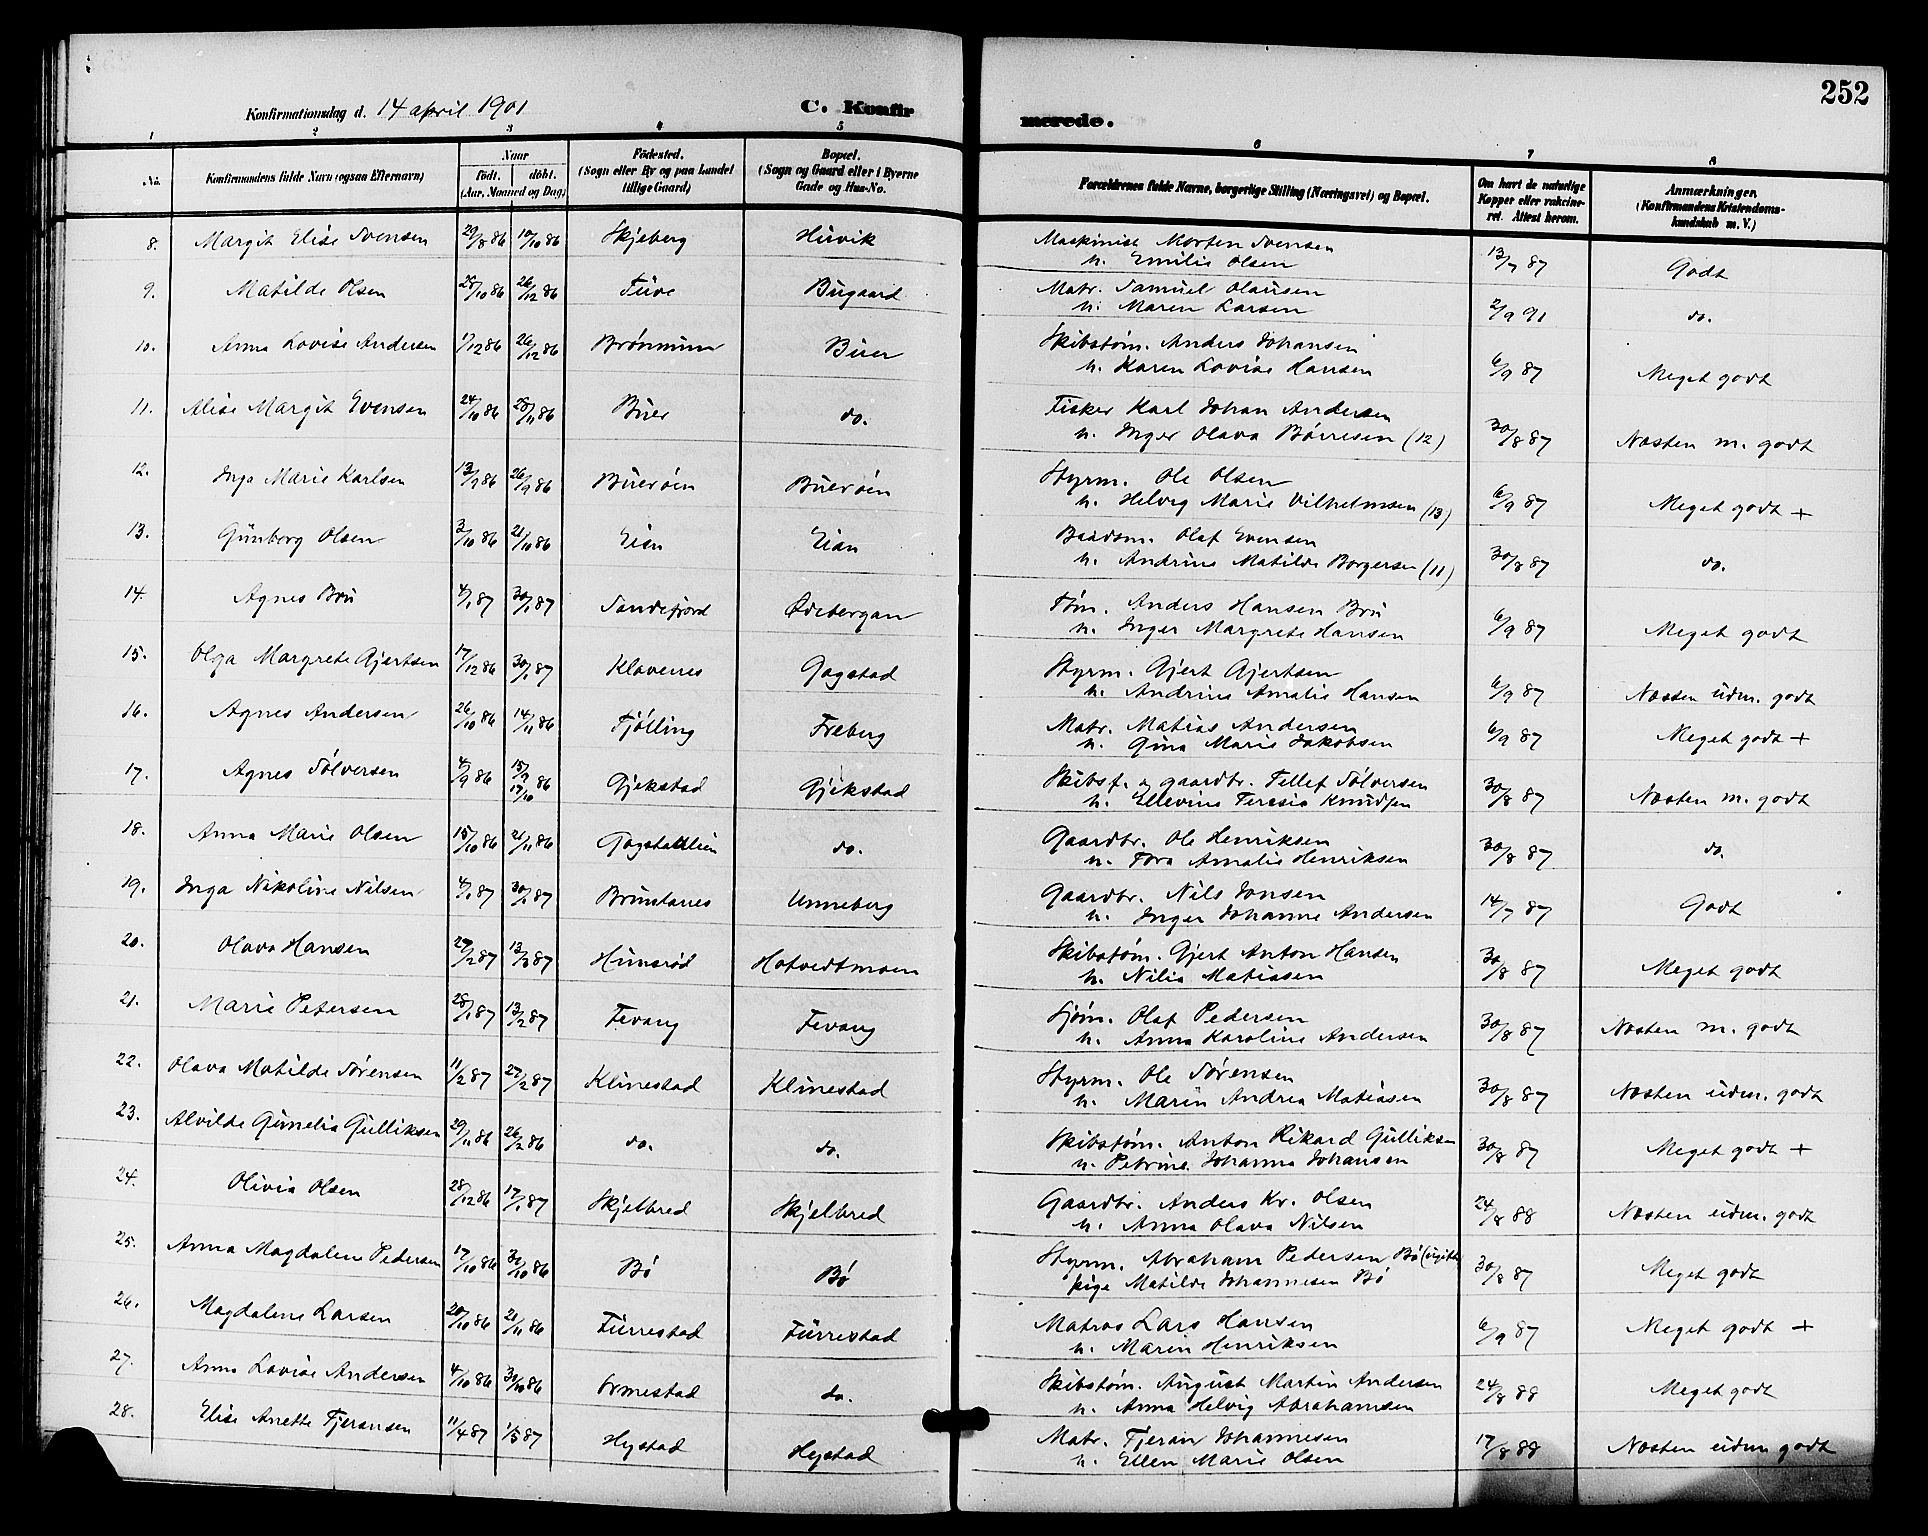 252
Konfirmationsdag d. 14 april 1901
C. Konfirmerede.
1 2 3 4 5 6 7 8
No. Konfirmandens fulde Navn (ogsaa Efternavn) Naar födt. döbt. (Aar, Maaned og Dag) Födested. (Sogn eller By og paa Landet tillige Gaard) Bopæl. (Sogn og Gaard eller i Byerne Gade og Hus-No. Forældrenes fulde Navne, borgerlige Stilling (Næringsvei) og Bopæl. Om havt de naturlige Kopper eller vakcineret. Attest herom. Anmærkninger. (Konfirmandens Kristendomskundskab m. V.)
8. Margit Elise Svensen 29/8 86 10/10 86 Skjeberg Huvik Maskinist Morten Svensen
u. Emilie Olsen 13/7 87 Godt
9. Matilde Olsen 28/10 86 26/12 86 Tuve Bugaard Matr. Samuel Olausen
u. Maren Larsen 2/9 91 do.
10. Anna Lovise Andersen 1/12 86 26/12 86 Brønnum Buer Skibstøm. Anders Johansen
u. Karen Lovise Hansen 6/9 87 Meget godt
11. Alise Margit Evensen 24/10 86 28/11 86 Buer do. Fisker Karl Johan Andersen
u. Inger Olava Børresen (12) 30/8 87 Næsten m. godt
12. Inga Marie Karlsen 13/9 86 26/9 86 Buerøen Buerøen Styrm. Ole Olsen
u. Helvig Marie Vilhelmsen (13) 6/9 87 Meget godt +
13. Gunborg Olsen 3/10 86 21/10 86 Eian Eian Baadsm. Olaf Evensen
u. Andrine Matilde Borgersen (11) 30/8 87 do.
14. Agnes Bru 4/1 87 30/1 87 Sandefjord Ødebergan Tøm. Anders Hansen Bru
u. Inger Margrete Hansen 6/9 87 Meget godt
15. Olga Margrete Gjertsen 17/12 86 30/1 87 Klavenes Gogstad Styrm. Gjert Gjertsen
u. Andrine Amalie Hansen 6/9 87 Næsten udm. godt
16. Agnes Andersen 26/10 86 14/11 86 Tjølling Freberg Matr. Matias Andersen
u. Gina Marie Jakobsen 6/9 87 Meget godt +
17. Agnes Sølversen 4/9 86 15/9 17/10 86 Gjekstad Gjekstad Skibsf. og gaardbr. Tellef Sølversen
u. Ellevine Teresia Knudsen 30/8 87 Næsten m. godt
18. Anna Marie Olsen 15/10 86 21/11 86 Gogstadlien do. Gaardbr. Ole Henriksen
u. Tora Amalie Henriksen 30/8 87 do.
19. Inga Nikoline Nilsen 4/1 87 30/1 87 Brunstanes Unneberg Gaardbr. Nils Jonsen
u. Inger Johanne Andersen 14/7 87 Godt
20. Olava Hansen 27/2 87 13/3 87 Hunsrød Hotvedtmoen Skibstøm. Gjert Anton Hansen
u. Nilia Matiasen 30/8 87 Meget godt
21. Marie Petersen 28/1 87 13/2 87 Fevang Fevang Sjøm. Olaf Pedersen
u. Anna Karoline Andersen 30/8 87 Næsten m. godt
22. Olava Matilde Sørensen 11/2 87 27/2 87 Klinestad Klinestad Styrm. Ole Sørensen
u. Marin Andrea Matiasen 30/8 87 Næsten udm. godt
23. Alvilde Gunelia Gulliksen 29/11 86 26/2 86 do. do. Skibstøm. Anton Rikard Gulliksen
u. Petrine Johanna Johansen 30/8 87 Meget godt +
24. Olivia Olsen 28/12 86 17/1 87 Skjelbred Skjelbred Gaardbr. Anders Kr. Olsen
u. Anna Olava Nilsen 24/8 88 Næsten udm. godt
25. Anna Magdalene Pedersen 17/10 86 31/10 86 Bø Bø Styrm. Abraham Pedersen Bø (ugift)
pige Matilde Johannesen Bø 30/8 87 Meget godt
26. Magdalene Larsen 20/10 86 21/11 86 Furrestad Furrestad Matros Lars Hansen
u. Marin Henriksen 6/9 87 Meget godt +
27. Anna Lovise Andersen 4/10 86 30/10 86 Ormestad do. Skibstøm. August Martin Andersen
u. Anna Helvig Abrahamsen 24/8 88 Meget godt
28. Elise Anette Tjeransen 11/4 87 1/5 87 Hystad Hystad Matr. Tjeran Johannesen
u. Ellen Marie Olsen 17/8 88 Næsten udm godt